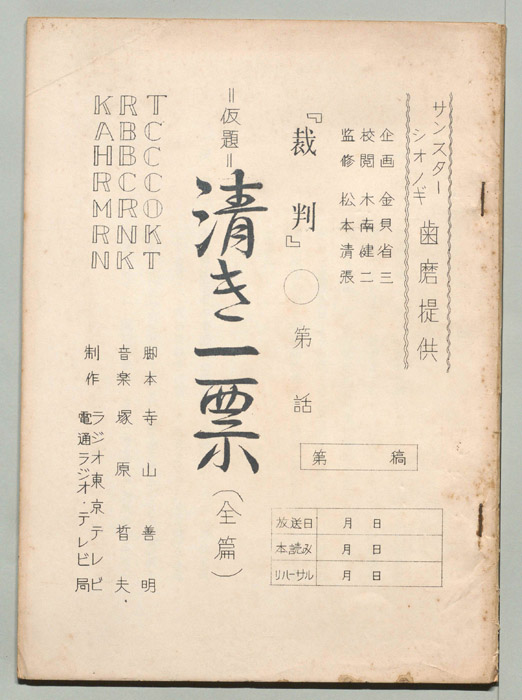 サンスター
シオノギ 歯磨提供
企画 金貝省三
校閲 木南健二
監修 松本清張
『裁判』○第 話
第 稿
放送日 月 日
本読み 月 日
リハーサル 月 日
=仮題=清き一票(全篇)
KRT
ABC
HBC
RCC
MRO
RNK
NKT
脚本 寺山善明
音楽 塚原哲夫.
制作 ラジオ東京テレビ
電通ラジオ・テレビ局